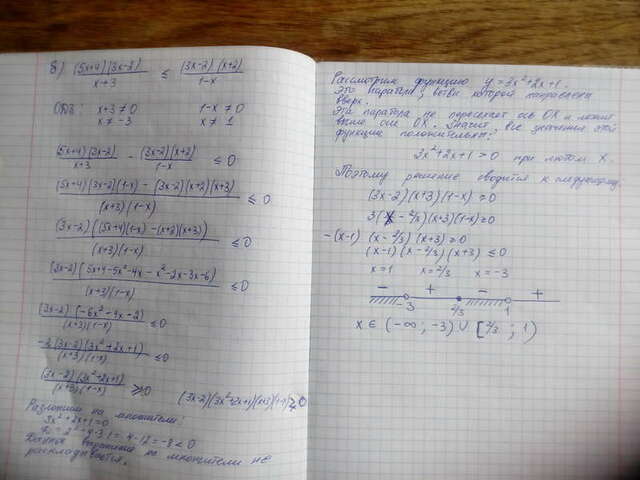 8) (5x+4)(3x-2)/(x+3) ≤ (3x-2)(x+2)/(1-x)
ОДЗ: x+3 ≠ 0 1-x ≠ 0
x ≠ -3 x ≠ 1
(5x+4)(3x-2)/(x+3) - (3x-2)(x+2)/(1-x) ≤ 0
(5x+4)(3x-2)(1-x) - (3x-2)(x+2)(x+3)/(x+3)(1-x) ≤ 0
(3x-2)((5x+4)(1-x) - (x+2)(x+3))/(x+3)(1-x) ≤ 0
(3x-2)(5x+4-5x²-4x-x²-2x-3x-6)/(x+3)(1-x) ≤ 0
(3x-2)(-6x²-4x-2)/(x+3)(1-x) ≤ 0
-2(3x-2)(3x²+2x+1)/(x+3)(1-x) ≤ 0
(3x-2)(3x²+2x+1)/(x+3)(1-x) ≥ 0
(3x-2)(3x²+2x+1)(x+3)(1-x) ≥ 0
Разложим на множители:
3x²+2x+1=0
D = 2² - 4·3·1 = 4-12 = -8 < 0
Данное выражение на множители не
раскладывается.
Рассмотрим функцию y = 3x²+2x+1.
Это парабола, ветви которой направлены
вверх.
Эта парабола не пересекает ось OX и лежит
выше оси OX. Значит, все значения этой
функции положительны.
3x²+2x+1 > 0 при любом x.
Поэтому решение сводится к следующему:
(3x-2)(x+3)(1-x) ≥ 0
3(x - 2/3)(x+3)(1-x) ≥ 0
-(x-1)(x-2/3)(x+3) ≥ 0
(x-1)(x-2/3)(x+3) ≤ 0
x=1 x=2/3 x=-3
- + - +
-3 2/3 1
x ∈ (-∞; -3) ∪ [2/3; 1)